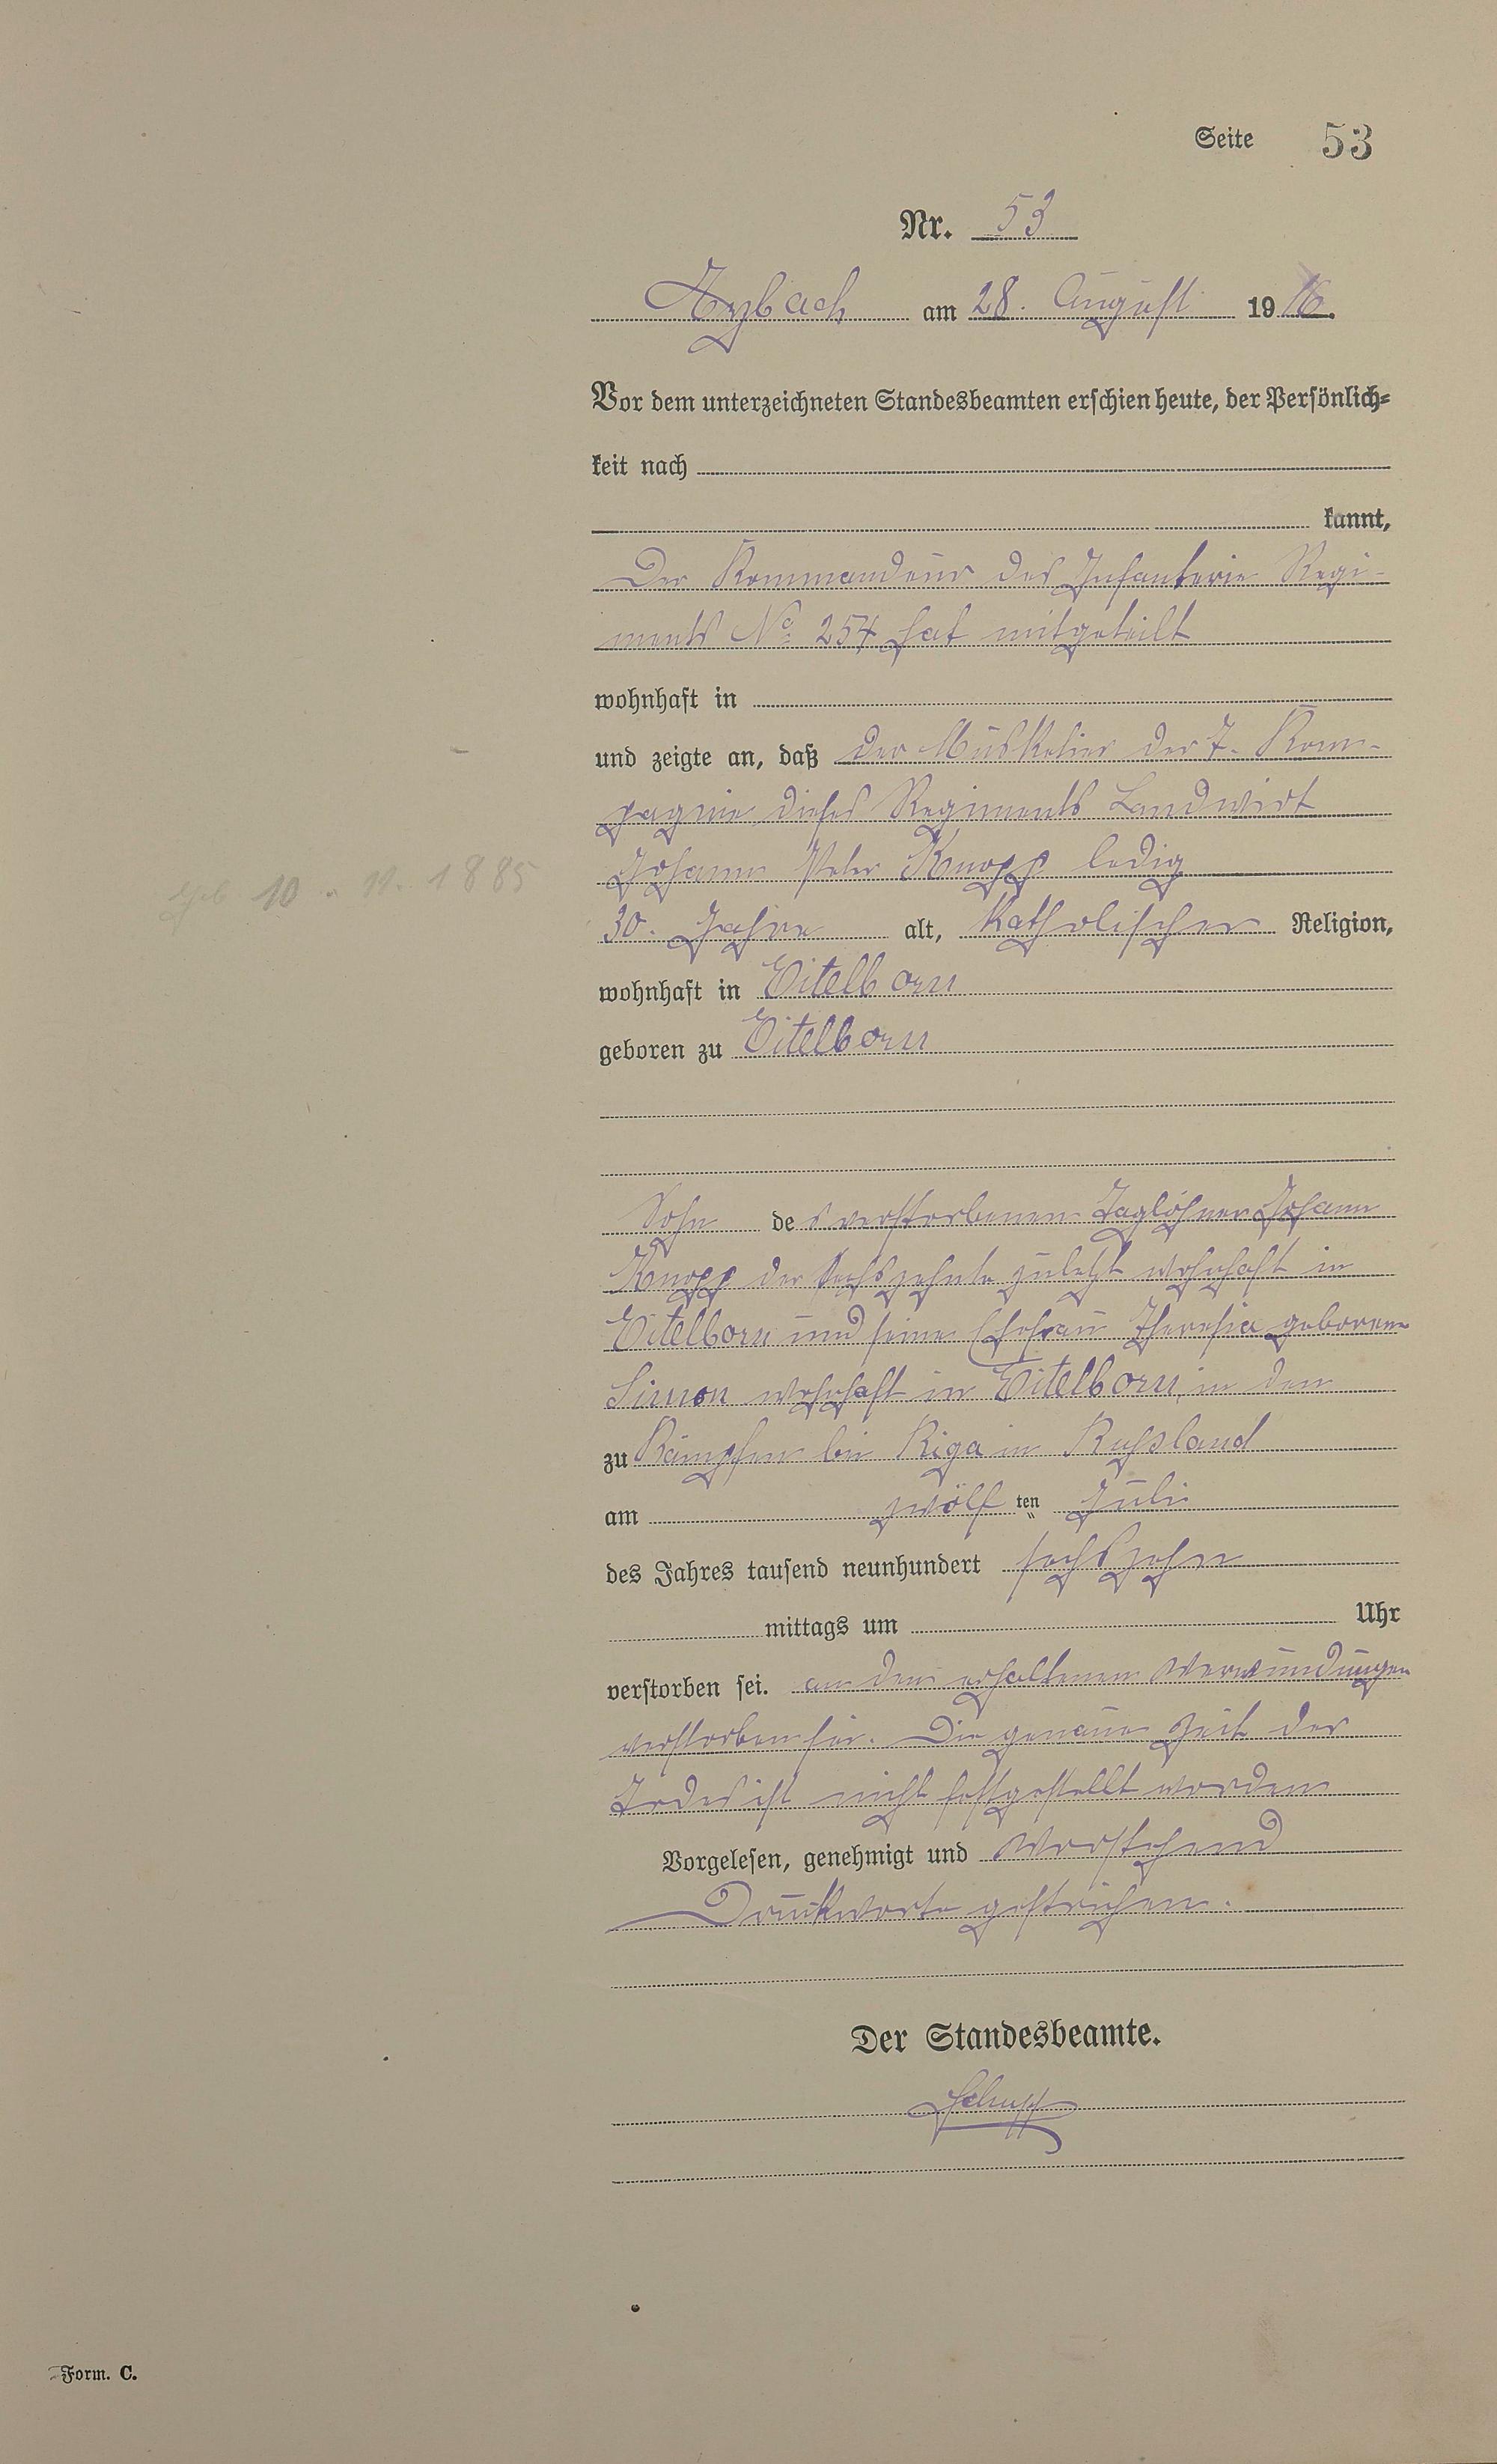 Seite 53
Nr. 53
Arzbach am 28. August 1916.
Vor dem unterzeichneten Standesbeamten erschien heute, der Persönlich-
keit nach
kannt,
Der Kommandeur des Infanterie Regi-
ments No 254 hat mitgeteilt
wohnhaft in
und zeigte an, daß der Musketier der 7. Kom-
pagnie dieses Regiments Landwirt
Johann Peter Knopp ledig
geb 10. 11. 1885
30. Jahre alt, katholischer Religion,
wohnhaft in Eitelborn
geboren zu Eitelborn
Sohn des verstorbenen Taglöhner Johann
Knopp der sechszehnte zuletzt wohnhaft in
Eitelborn und seiner Ehefrau Theresia geborene
Simon wohnhaft in Eitelborn, in den
zu Kämpfen bei Riga in Russland
am zwölf ten Juli
des Jahres tausend neunhundert sechszehn
mittags um Uhr
verstorben sei. an den erhaltenen Verwundungen
verstorben sei. Die genaue Zeit des
Todes ist nicht festgestellt worden
Vorgelesen, genehmigt und Vorstehend
Druckworte gestrichen.
Der Standesbeamte.
Schupp
Form. C.